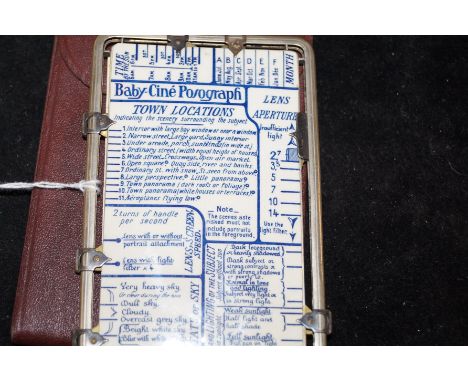 TIME
A B C D E F
MONTH
Baby-Ciné Posograph
TOWN LOCATIONS
Indicating the scenery surrounding the subject
1. Interior with large bay window or near a window
2. Narrow street, Large yard, Sunny interior
3. Under arcade, porch,
4. Ordinary street (width equal height of houses)
5. Wide street, Crossways, Open air market
6. Open square Quay side, river and banks
7. Ordinary st. with snow, St. seen from above
8. Large perspective. Little panorama
9. Town panorama (dark roofs or foliage)
10. Town panorama (white houses or
11. Aeroplanes flying low
LENS
APERTURE
Insufficient
light
2.7
3.5
5
7
10
14
Use the
light filter
2 turns of handle
per second
Lens with or without
portrait attachment
Lens with light
filter x 4
LENS SCREEN
SPEED
Note
The scenes aste
risked must not
include portraits
in the foreground.
Very heavy sky
Dull sky
Cloudy
Overcast grey sky
Bright white sky
Blue with white
OF SKY
LIGHTING OF THE SUBJECT
Dark foreground
or heavily shadowed
Dark subject or
strong contrasts
with strong shadows
Animal in tone
and lighting
Subject very light or
in strong light
Weak sunlight
Half light and
half shade
Full sunlight